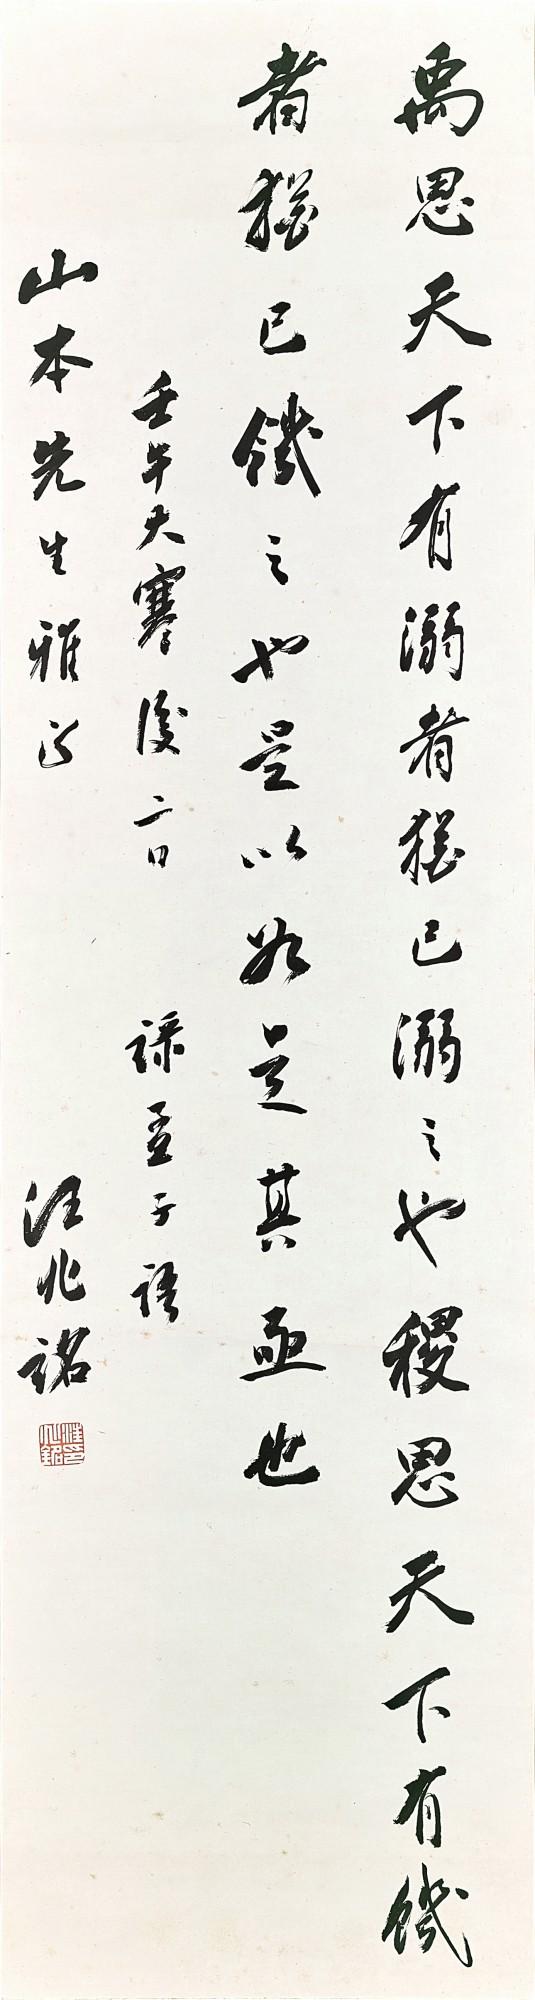 禹思天下有溺者猶己溺之也稷思天下有饑
者猶己饑之也是以如是其亟也
壬午大寒後二日 録孟子語
山本先生雅正 汪兆銘
汪兆銘印